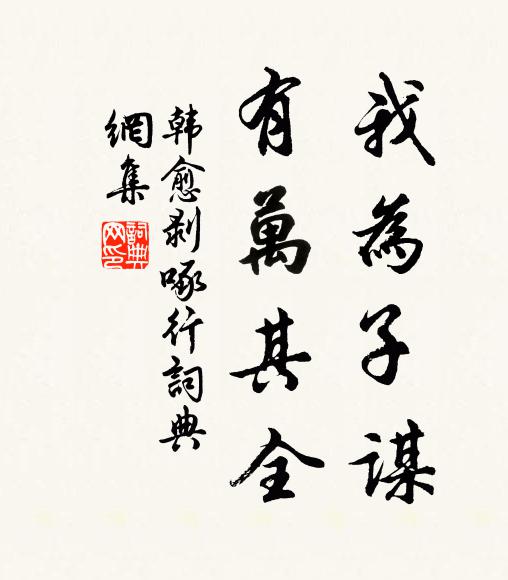 我為子謀
有萬其全
韩愈剥啄行詞典
網集
詞典网印